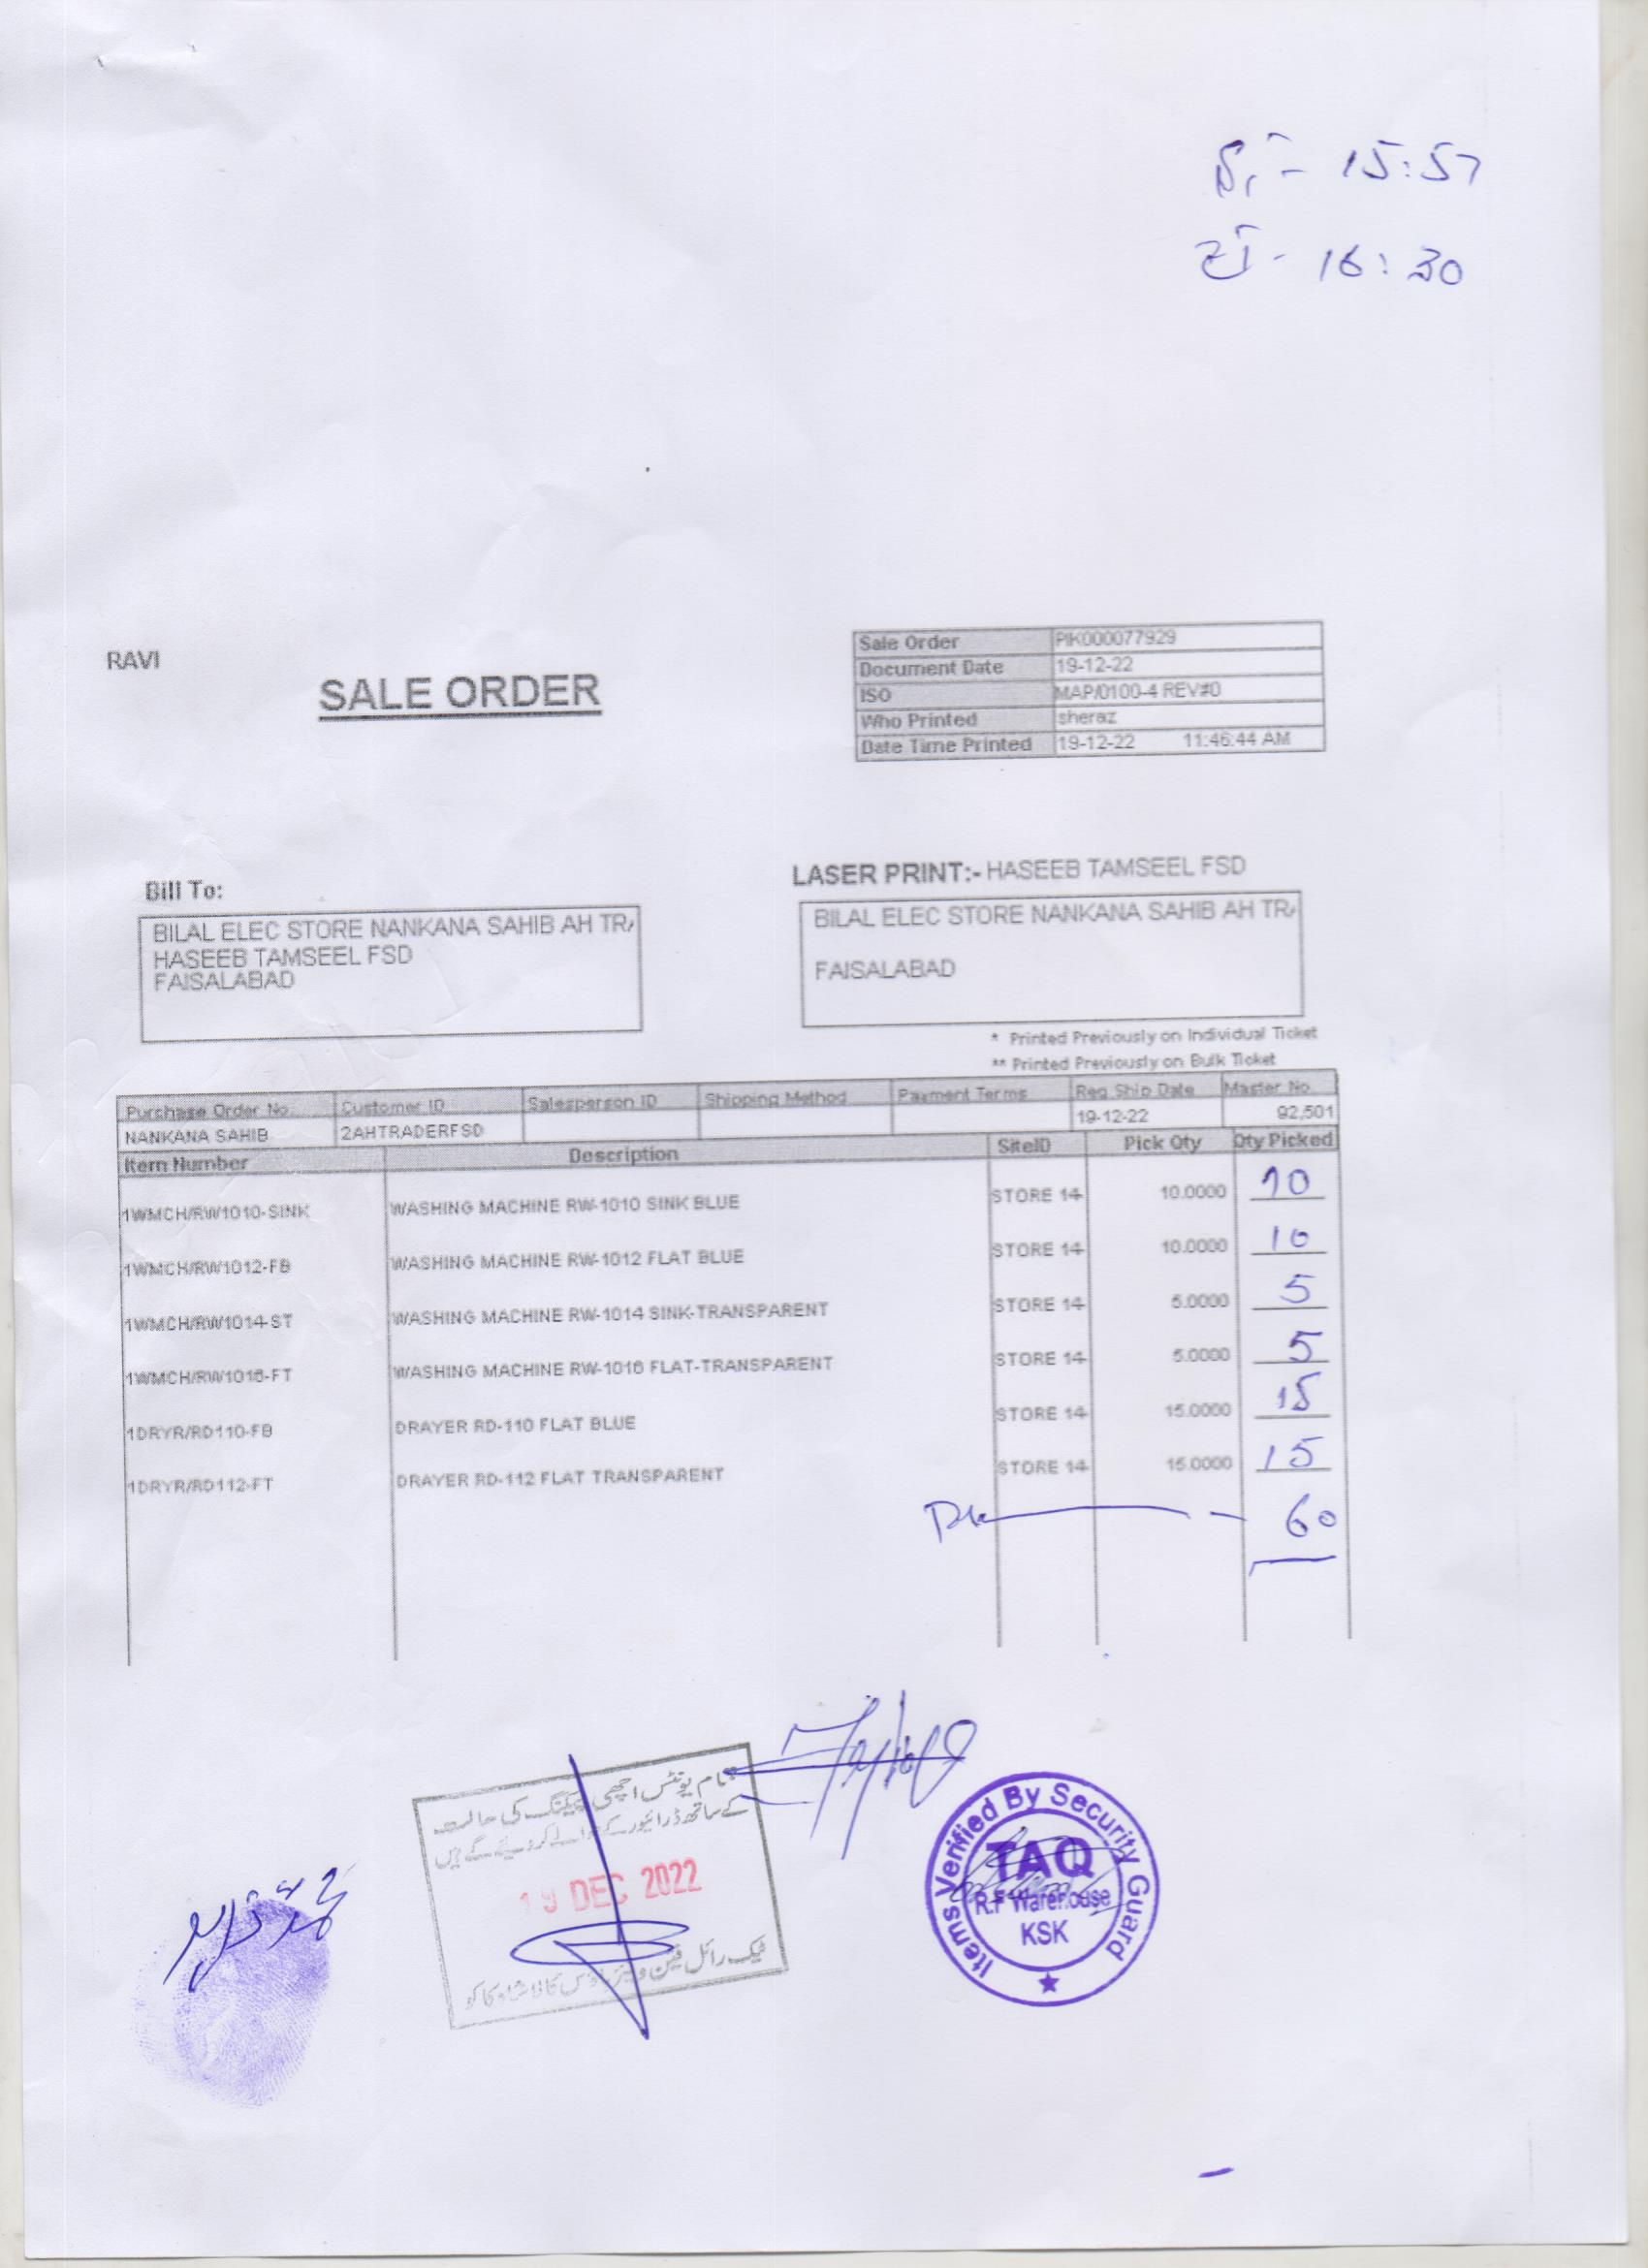 15:57
16:30
RAVI
SALE ORDER
Sale Order PIK000077929
Document Date 19-12-22
ISO MAP/0100-4 REV#0
Who Printed sheraz
Date Time Printed 19-12-22 11:46:44 AM
Bill To:
BILAL ELEC STORE NANKANA SAHIB AH TR
HASEEB TAMSEEL FSD
FAISALABAD
LASER PRINT:- HASEEB TAMSEEL FSD
BILAL ELEC STORE NANKANA SAHIB AH TR
FAISALABAD
* Printed Previously on Individual Ticket
** Printed Previously on Bulk Ticket
Purchase Order No. Customer ID Salesperson ID Shipping Method Payment Terms Req Ship Date Master No.
NANKANA SAHIB 2AHTRADERFSD 19-12-22 92,501
Item Number Description SiteID Pick Qty Qty Picked
1WMCH/RW1010-SINK WASHING MACHINE RW-1010 SINK BLUE STORE 14 10.0000 10
1WMCH/RW1012-FB WASHING MACHINE RW-1012 FLAT BLUE STORE 14 10.0000 10
1WMCH/RW1014-ST WASHING MACHINE RW-1014 SINK-TRANSPARENT STORE 14 5.0000 5
1WMCH/RW1016-FT WASHING MACHINE RW-1016 FLAT-TRANSPARENT STORE 14 5.0000 5
1DRYR/RD110-FB DRAYER RD-110 FLAT BLUE STORE 14 15.0000 15
1DRYR/RD112-FT DRAYER RD-112 FLAT TRANSPARENT STORE 14 15.0000 15
60
تمام یونٹس اچھی پیکنگ کی حالت
کے ساتھ ڈرائیور کے حوالے کر دیئے گئے ہیں
19 DEC 2022
ٹیک رائل فین ویئر ہاؤس کالا شاہ کاکو
Items Verified By Security Guard
TAQ
R.F Warehouse
KSK